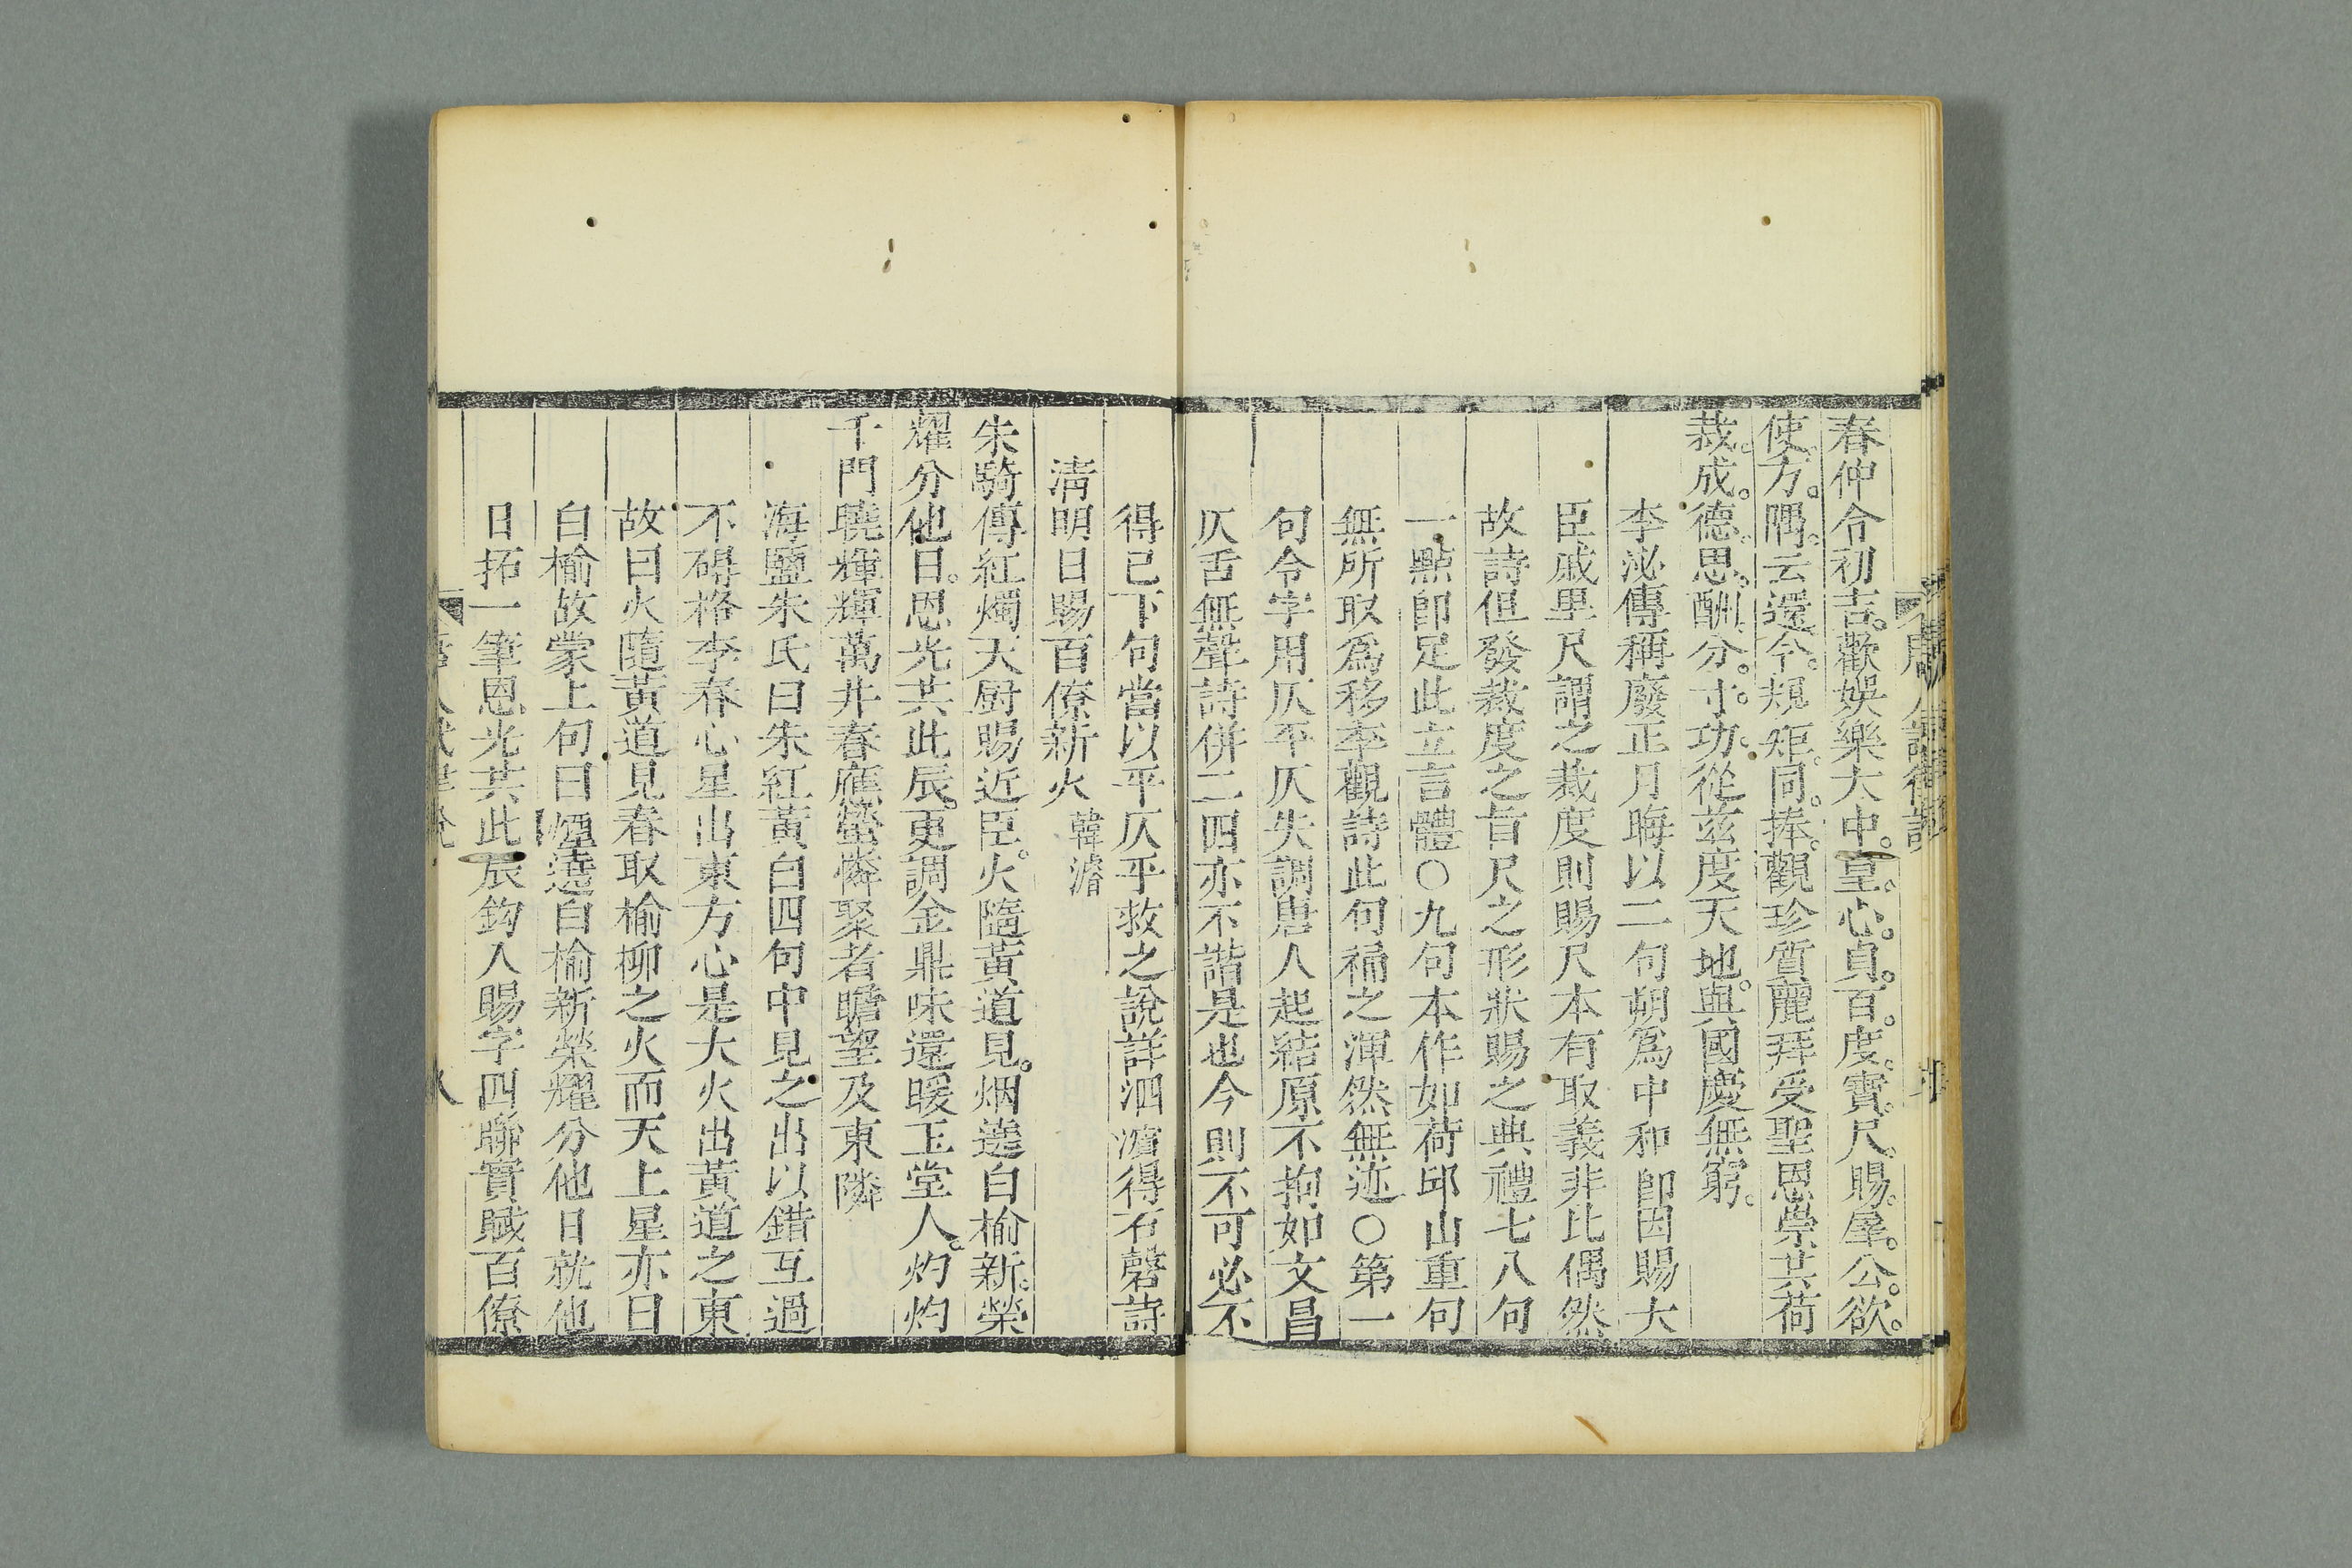 春仲令初吉。歡娛樂大中。皇。心。貞。百。度。寶。尺。賜。羣。公。欲。
使。方。隅。云。還。令。規。矩。同。捧。觀珍質麗拜受聖恩崇共荷
裁。成。德。思。酬。分。寸。功。從茲度天地。與國慶無窮。
李泌傳稱廢正月晦以二句朔爲中和卽因賜大
臣戚里尺謂之裁度則賜尺本有取義非比偶然
故詩但發裁度之旨尺之形狀賜之典禮七八句
一點卽足此立言體○九句本作如荷邱山重句
無所取爲移奉觀詩此句補之渾然無迹○第一
句令字用仄平仄失調唐人起結原不拘如文昌
仄舌無聲詩併二四亦不諧是也今則不可必不
得已下句當以平仄平救之說詳泗濱得石磬詩
淸明日賜百僚新火 韓濬
朱騎傳紅燭天廚賜近臣。火隨黃道見。烟遶白榆新。榮
耀分他日。恩光共此辰。更調金鼎味還暖玉堂人。灼灼
千門曉輝輝萬井春應螢憐聚者瞻望及東隣
海鹽朱氏曰朱紅黃白四句中見之出以錯互過
不碍格李春心星出東方心是大火出黃道之東
故曰火隨黃道見春取榆柳之火而天上星亦曰
白榆故蒙上句曰煙遶白榆新榮耀分他日就他
日拓一筆恩光共此辰鈎入賜字四聯實賦百僚